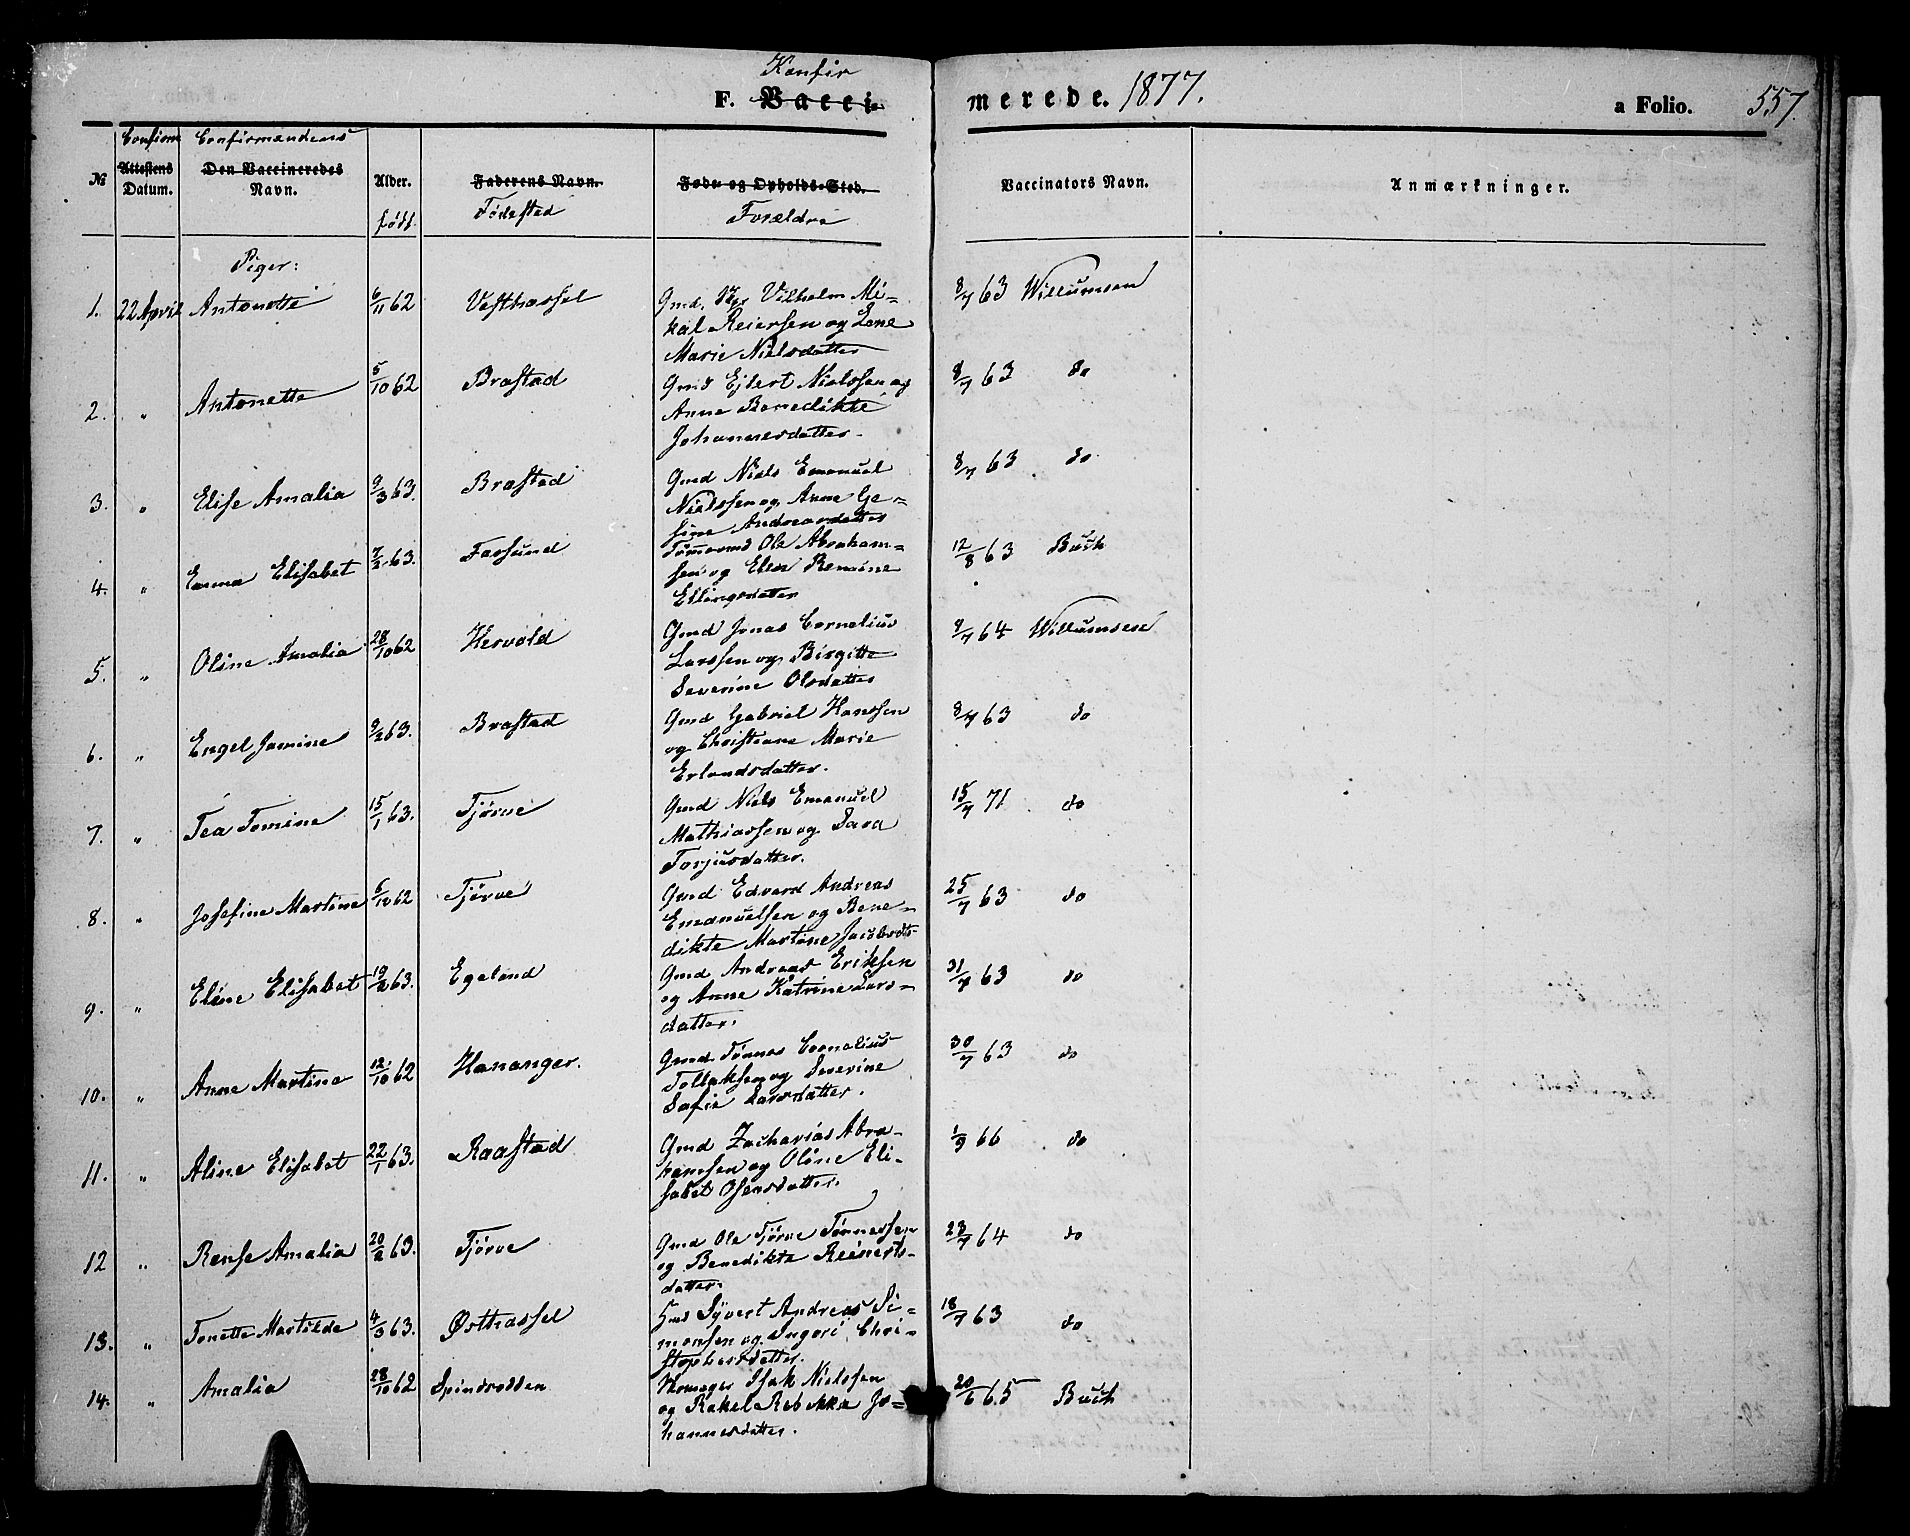 Konfir
F. Vacci- merede. 1877. a Folio. 557.
Confirm Confirmandens
№ Attestens Datum. Den Vaccineredes Navn. Alder. Faderens Navn. Føde- og Opholds-Sted. Vaccinators Navn. Anmærkninger.
født. Fødested Forældre
Piger:
1. 22 April Antonette 6/11 62 Vesthassel Gmd. Vilhelm Mi- 8/7 63 Willumsen
kal Reiersen og Lene
Marie Nielsdatter
2. " Antonette 5/10 62 Brastad Gmd Ejlert Nielssen og 8/7 63 do
Anne Benedikte
Johannesdatter.
3. " Elise Amalia 9/3 63. Brastad Gmd Niels Emanuel 8/7 63 do
Nielssen og Anne Ge-
sine Andreasdatter
4. " Emma Elisabet 7/2 63. Farsund Tømermd Ole Abraham- 12/8 63 Buch
sen og Elen Remine
Ellingsdatter
5. " Oline Amalia 28/10 62 Hervold Gmd Jonas Cornelius 9/7 64 Willumsen
Larssen og Birgitte
Severine Olsdatter
6. " Engel Jamine 9/2 63. Brastad Gmd Gabriel Hanssen 8/7 63 do
og Christiane Marie
Erlandsdatter.
7. " Tea Tomine 15/1 63. Tjørve Gmd Niels Emanuel 15/7 71 do
Mathiassen og Sara
Torjusdatter.
8. " Josefine Martine 6/10 62 Tjørve Gmd Edvard Andreas 25/7 63 do
Emanuelsen og Bene-
dikte Martine Jacobsdt-
9. " Eline Elisabet 19/2 63. Egeland Gmd Andreas Eriksen 31/7 63 do
og Anne Katrine Lars-
datter.
10. " Anne Martine 12/10 62 Hananger. Gmd. Tønnes Cornelius 30/7 63 do
Tollaksen og Severine
Sofie Larsdatter.
11. " Aline Elisabet 22/1 63. Raastad Gmd Zacharias Abra- 1/9 66 do
hamsen og Oline Eli-
sabet Osensdatter.
12 " Rense Amalia 20/2 63. Tjørve Gmd Ole Tjørve Tønnessen 23/7 64 do
og Benedikte Reinerts-
datter.
13. " Tonette Martilde 4/3 63. Østhassel Hmd Syvert Andreas Si- 18/7 63 do
monsen og Ingeri Chri-
stophersdatter.
14. " Amalia 28/10 62 Spindsodden Skomager Isak Nielssen 20/6 65 Buch
og Rakel Rebekka Jo-
hannesdatter.